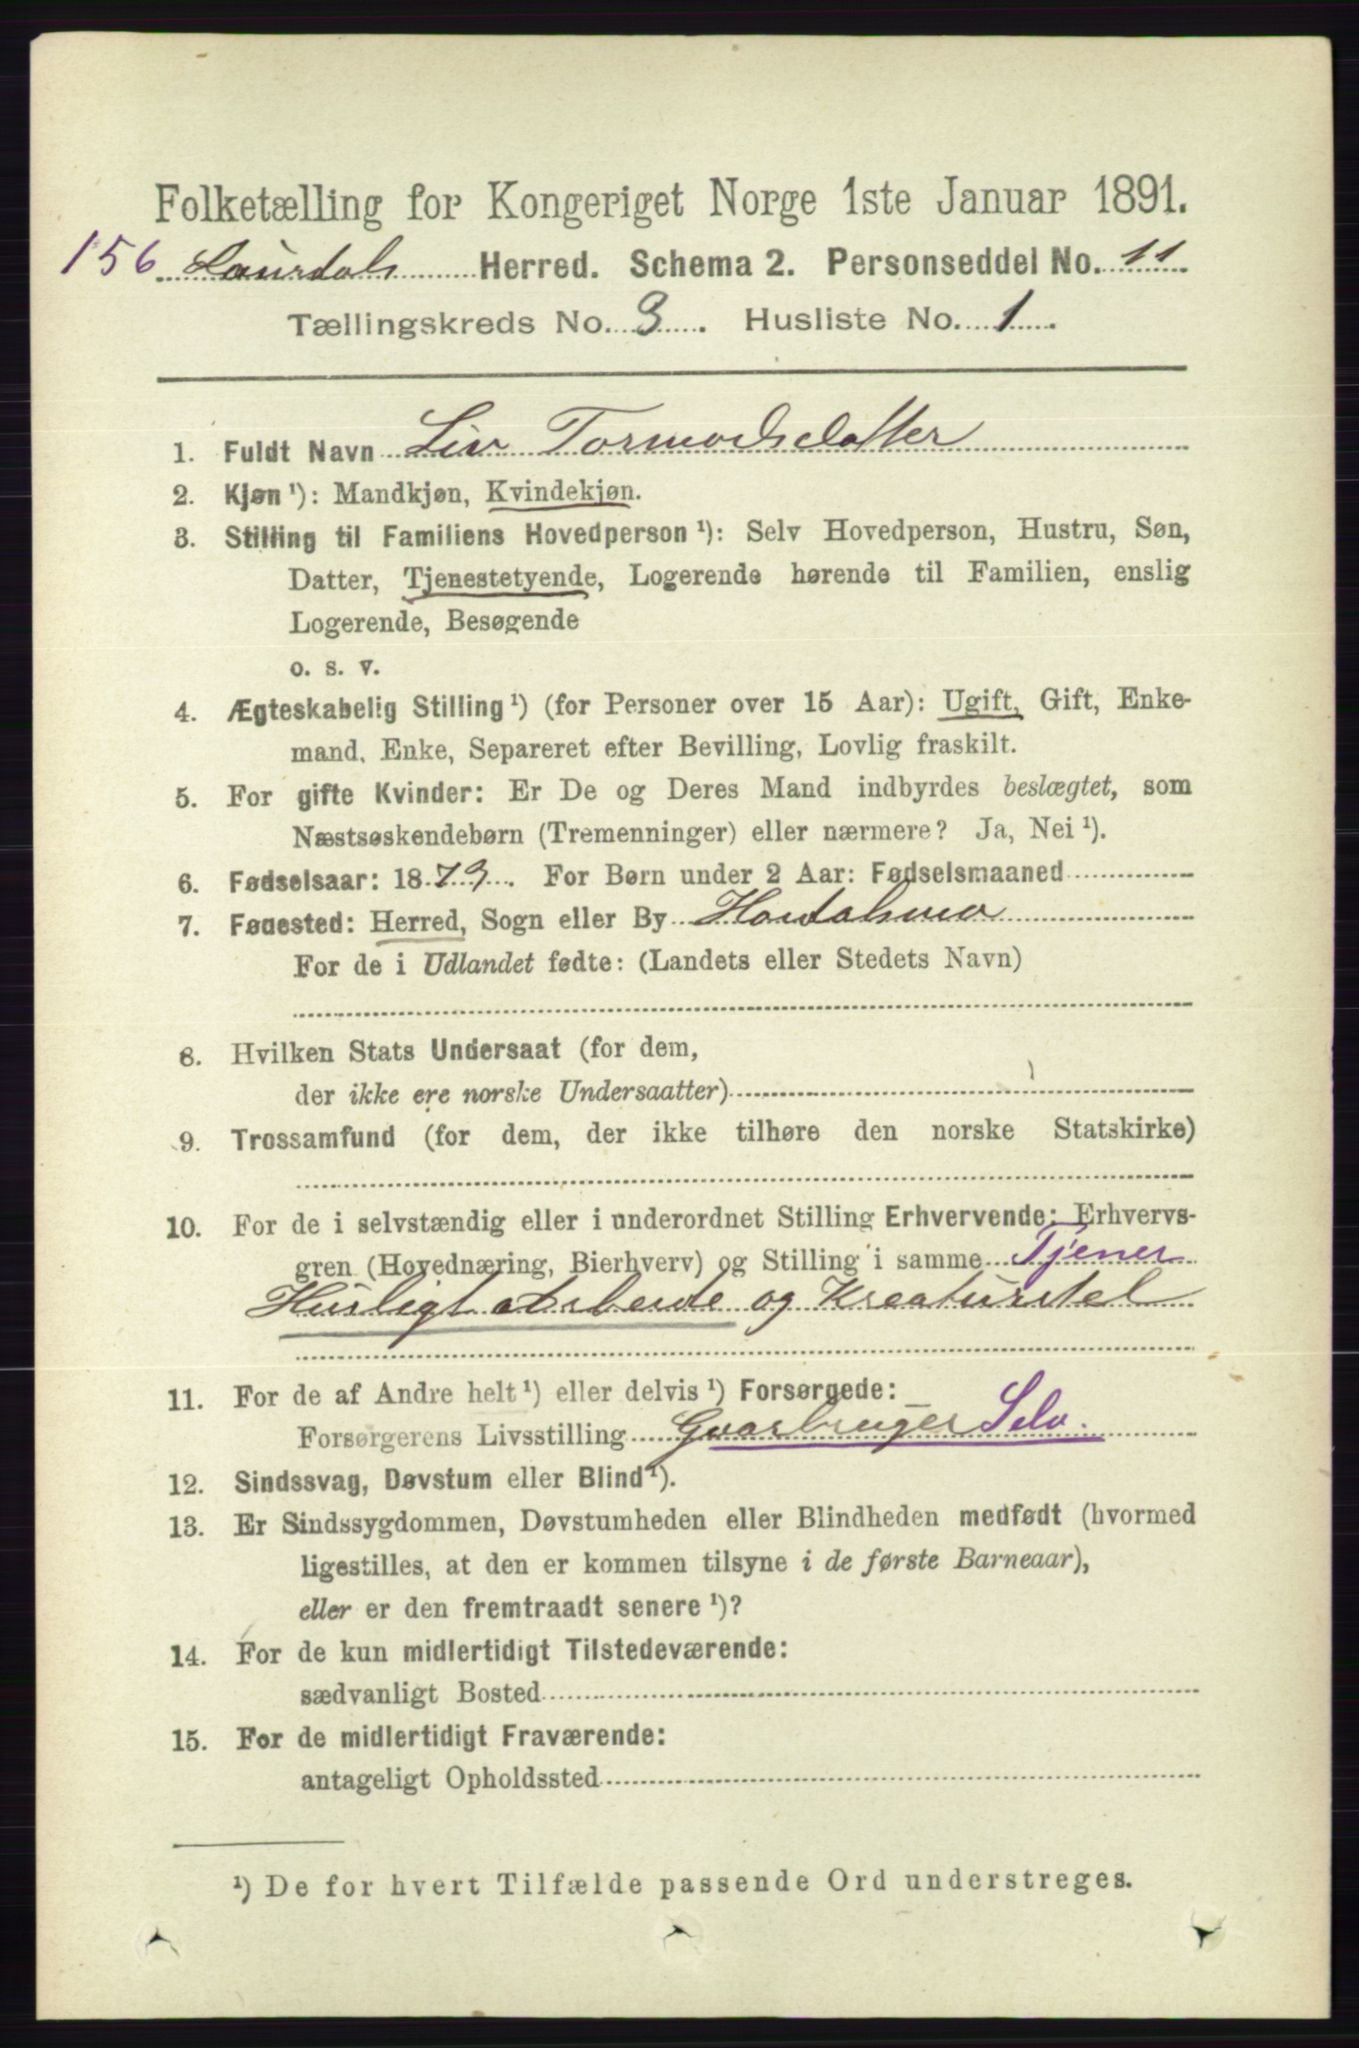 Folketælling for Kongeriget Norge 1ste Januar 1891.
156 Laurdals Herred. Schema 2. Personseddel No. 11
Tællingskreds No. 3. Husliste No. 1.
1. Fuldt Navn Liv Tormodsdatter
2. Kjøn ¹): Mandkjøn, Kvindekjøn.
3. Stilling til Familiens Hovedperson ¹): Selv Hovedperson, Hustru, Søn,
Datter, Tjenestetyende, Logerende hørende til Familien, enslig
Logerende, Besøgende
o. s. v.
4. Ægteskabelig Stilling ¹) (for Personer over 15 Aar): Ugift, Gift, Enke-
mand, Enke, Separeret efter Bevilling, Lovlig fraskilt.
5. For gifte Kvinder: Er De og Deres Mand indbyrdes beslægtet, som
Næstsøskendebørn (Tremenninger) eller nærmere? Ja, Nei ¹).
6. Fødselsaar: 1873. For Børn under 2 Aar: Fødselsmaaned
7. Fødested: Herred, Sogn eller By
For de i Udlandet fødte: (Landets eller Stedets Navn)
8. Hvilken Stats Undersaat (for dem,
der ikke ere norske Undersaatter)
9. Trossamfund (for dem, der ikke tilhøre den norske Statskirke)
10. For de i selvstændig eller i underordnet Stilling Erhvervende: Erhvervs-
gren (Hovednæring, Bierhverv) og Stilling i samme Tjener
Husligt arbeide og Kreaturstel
11. For de af Andre helt ¹) eller delvis ¹) Forsørgede:
Forsørgerens Livsstilling Gaarbruger Selv.
12. Sindssvag, Døvstum eller Blind ¹).
13. Er Sindssygdommen, Døvstumheden eller Blindheden medfødt (hvormed
ligestilles, at den er kommen tilsyne i de første Barneaar),
eller er den fremtraadt senere ¹)?
14. For de kun midlertidigt Tilstedeværende:
sædvanligt Bosted
15. For de midlertidigt Fraværende:
antageligt Opholdssted
¹) De for hvert Tilfælde passende Ord understreges.